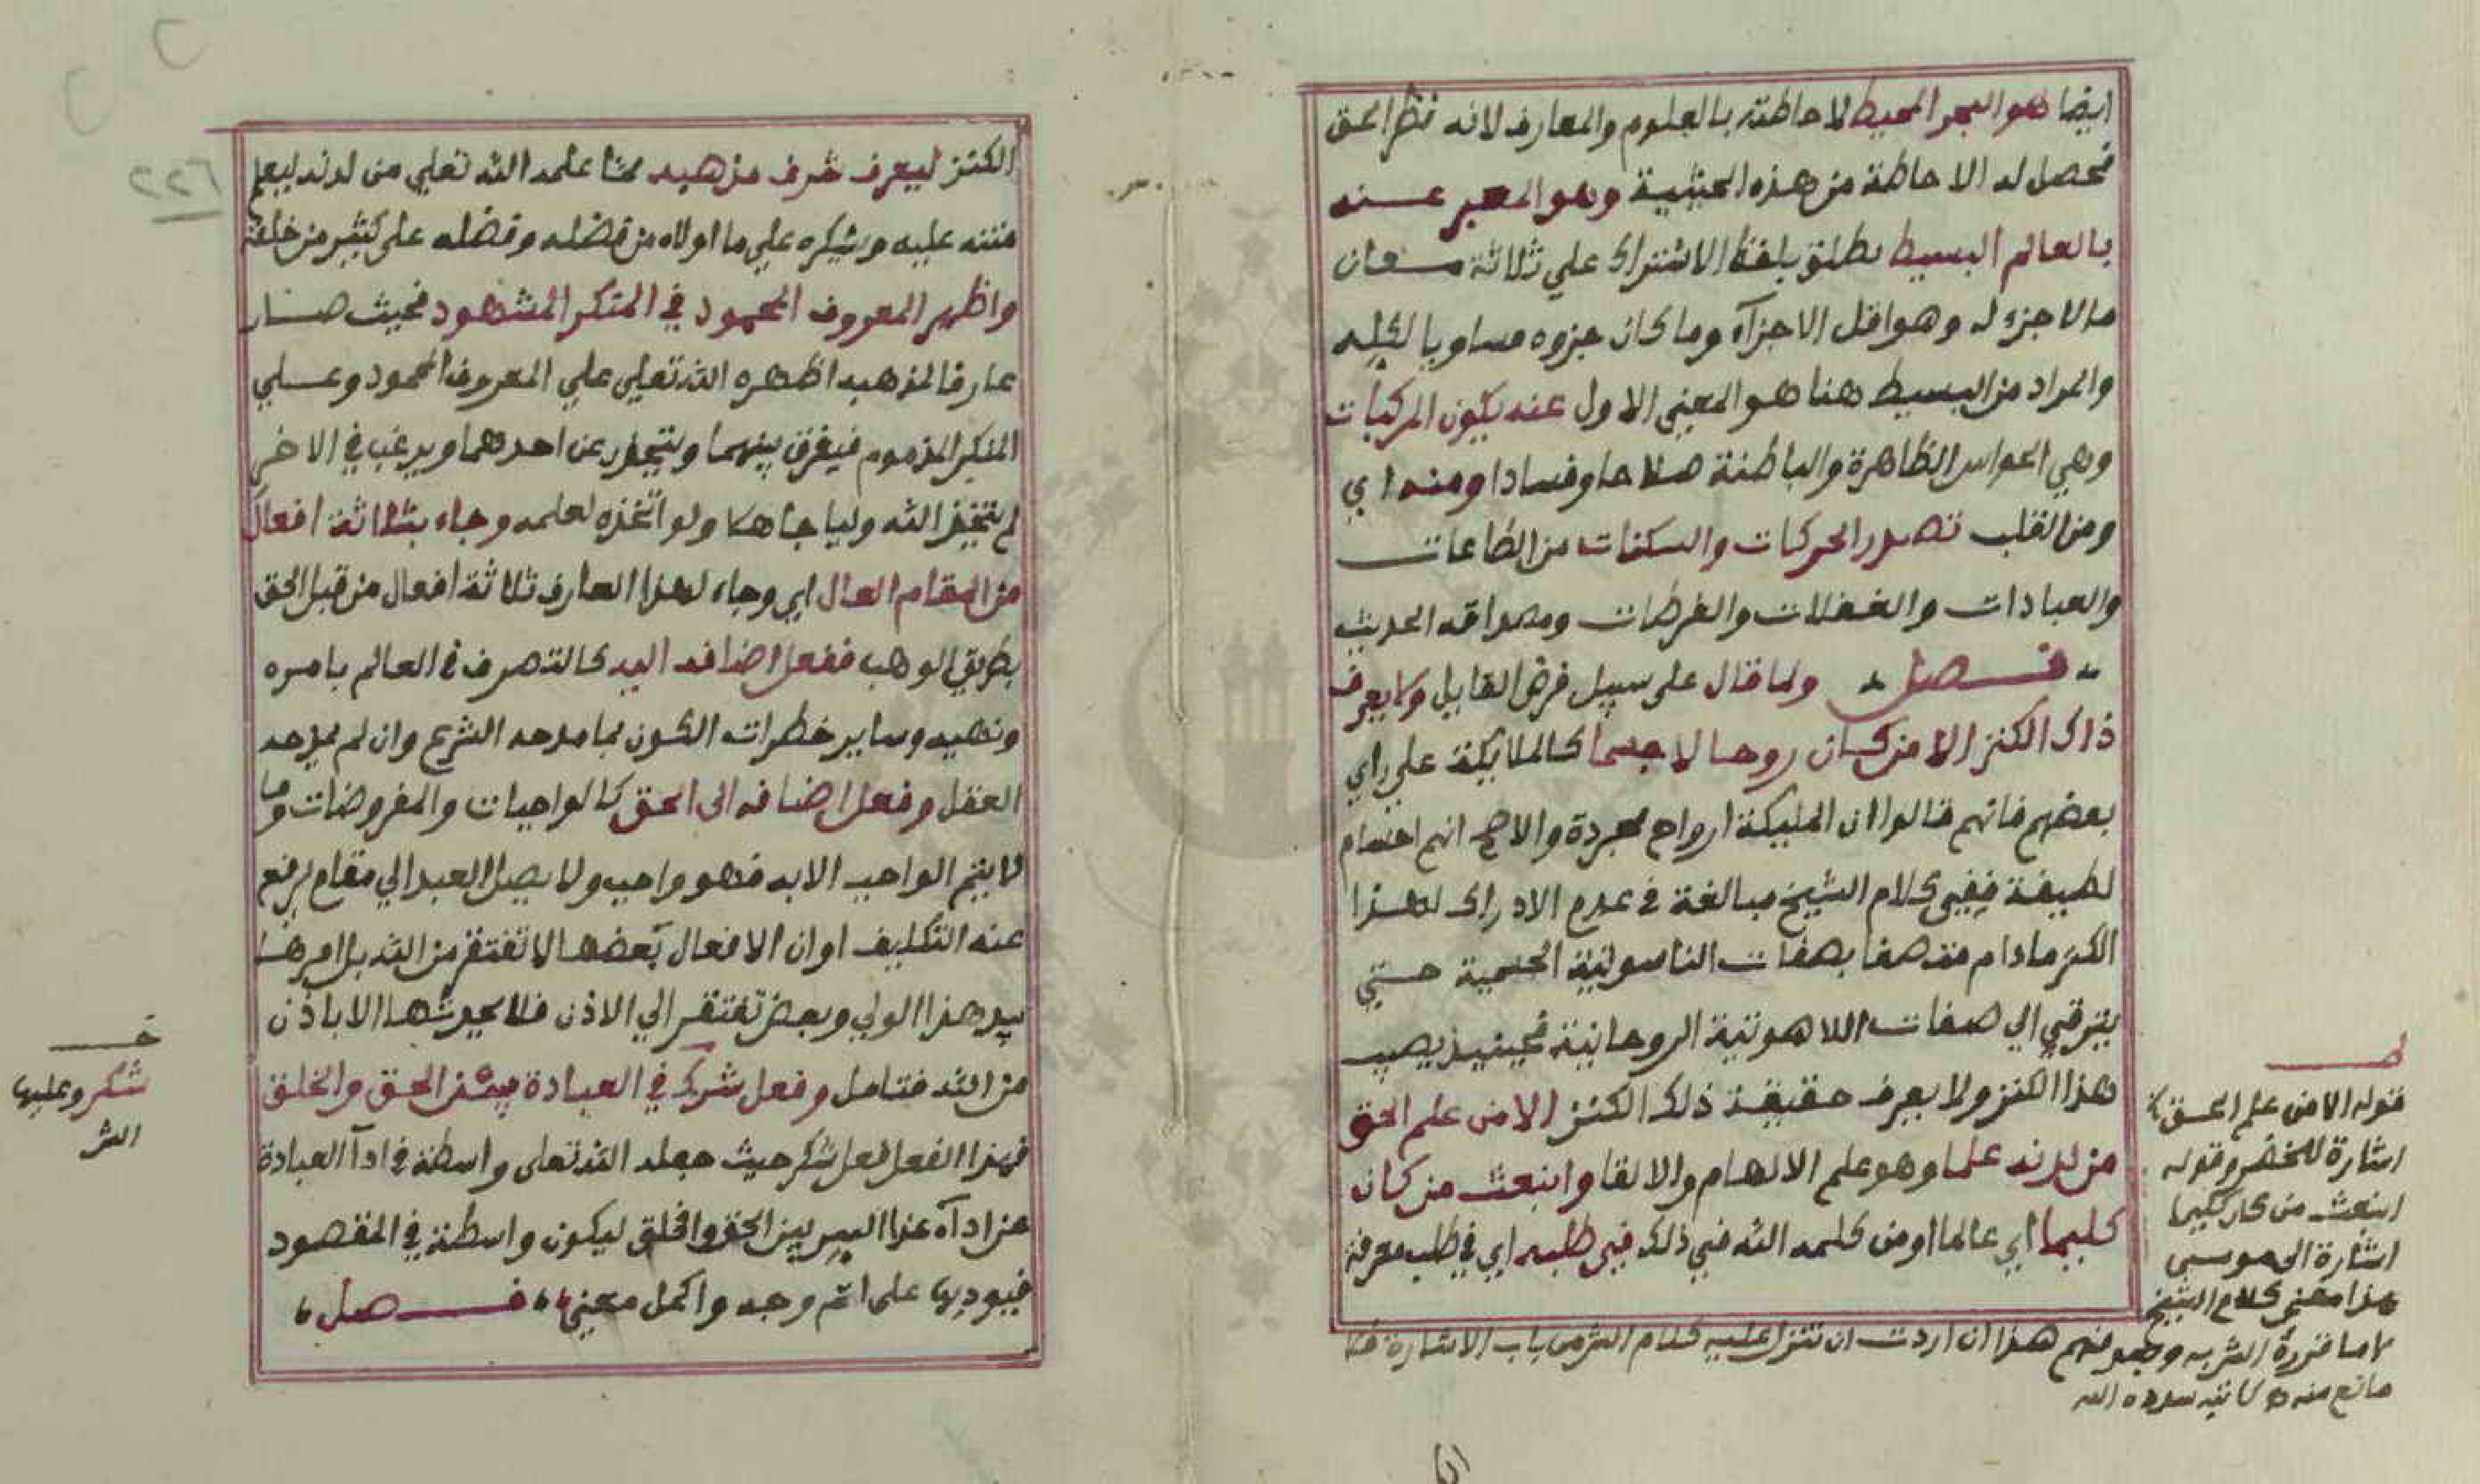 ايضا هو البحر المحيط لاحاطته بالعلوم والمعارف لانه نظر الحق
فحصل له الاحاطة من هذه الحيثية وهو المعبر عنه
بالعالم البسيط يطلق بلفظ الاشتراك علي ثلاثة معان
ما لا جزء له وهو اقل الاجزآء وما كان جزوه مساويا لكله
والمراد من البسيط هنا هو المعني الاول عنه يكون المركبات
وهي الحواس الظاهرة والباطنة صلاحا وفسادا ومنه اي
ومن القلب تصدر الحركات والسكنات من الطاعات
والعبادات والغفلات والفرطات ومصداقه الحديث
فصل ولما قال على سبيل فرض القايل ولا يعرف
ذاك الكنز الا من كان روحا لا جسما كالملايكة علي راي
بعضهم فانهم قالوا ان المليكة ارواح مجردة والاصح انهم اجسام
لطيفة ففي كلام الشيخ مبالغة في عدم الادراك لهذا
الكنز مادام متصفا بصفات الناسوتية الجسمية حتي
يترقي الي صفات اللاهوتية الروحانية فحينيذ يصيب
هذا الكنز ولا يعرف حقيقة ذلك الكنز الا من علم الحق
من لدنه علما وهو علم الالهام والالقا وانبعث من كان
كليما اي عالما او من كلمه الله فني ذلك في طلبه اي في طلب معرفة
قوله الا من علم الحق
اشارة للخضر وقوله
انبعث من كان كليما
اشارة الي موسي
هذا معني كلام الشيخ
لا ما قرره الشر به وبعد فهم هذا ان اردت ان تنزل عليه كلام الشر من باب الاشارة فلا
مانع منه كاتبه الله
الكنز ليعرف شرف مذهبه مما علمه الله تعلي من لدنه ليعلم
منته عليه ويشكره علي ما اولاه من فضله وفضله على كثير من خلقه
واظهر المعروف المحمود في المنكر المشهود فحيث صار
عارفا لمذهبه اظهره الله تعلي علي المعروف المحمود وعلي
المنكر المذموم فيفرق بينهما ويتجلد عن احدهما ويرغب في الاخر
لم يتخذ الله وليا جاهلا ولو اتخذه لعلمه وجاء بثلاثة افعال
من المقام العال اي وجاء لهذا العارف ثلاثة افعال من قبل الحق
بطريق الوهب ففعل اضافه اليه كالتصرف في العالم بامره
ونهيه وساير خطرات الكون مما مدحه الشرع وان لم يمدحه
العقل وفعل اضافه الى الحق كالواجبات والمفروضات وما
لا يتم الواجب الا به فهو واجب ولا يصل العبد الي مقام يرفع
عنه التكليف او ان الافعال بعضها لا تفتقر من الله بل امرها
بيد هذا الولي وبعض تفتقر الي الاذن فلا يحدثها الا باذن
من الله فتامل وفعل شرك في العبادة بين الحق والخلق
فهذا الفعل فعل شكر حيث جعله الله تعلى واسطة في ادآ العبادة
عن ادآء هذا السر بين الحق والخلق ليكون واسطة في المقصود
فيوديها على اتم وجه واكمل معني فصل
خ
شكر وعليها
الشر